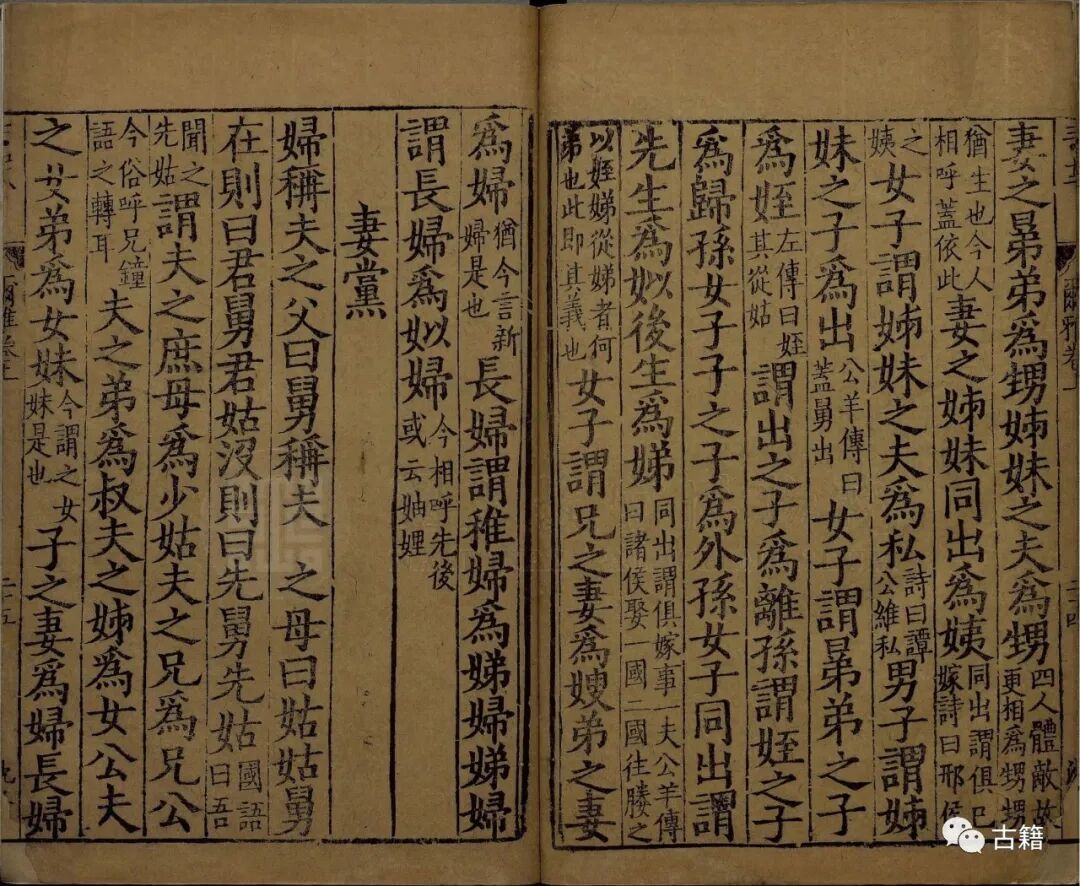 妻之晜弟爲甥姊妹之夫爲甥四人體敵故更相爲甥甥
猶生也今人相呼蓋依此妻之姊妹同出爲姨同出謂俱已嫁詩曰邢侯
之姨女子謂姊妹之夫爲私詩曰譚公維私男子謂姊
妹之子爲出公羊傳曰蓋舅出女子謂晜弟之子
爲姪左傳曰姪其從姑謂出之子爲離孫謂姪之子
爲歸孫女子子之子爲外孫女子同出謂
先生爲姒後生爲娣同出謂俱嫁事一夫公羊傳曰諸侯娶一國二國往媵之
以姪娣從娣者何弟也此即其義也女子謂兄之妻爲嫂弟之妻
爲婦猶今言新婦是也長婦謂稚婦爲娣婦娣婦
謂長婦爲姒婦今相呼先後或云妯娌
妻黨
婦稱夫之父曰舅稱夫之母曰姑姑舅
在則曰君舅君姑沒則曰先舅先姑國語曰吾
聞之先姑謂夫之庶母爲少姑夫之兄爲兄公
今俗呼兄鐘語之轉耳夫之弟爲叔夫之姊爲女公夫
之女弟爲女妹今謂之女妹是也子之妻爲婦長婦
古籍